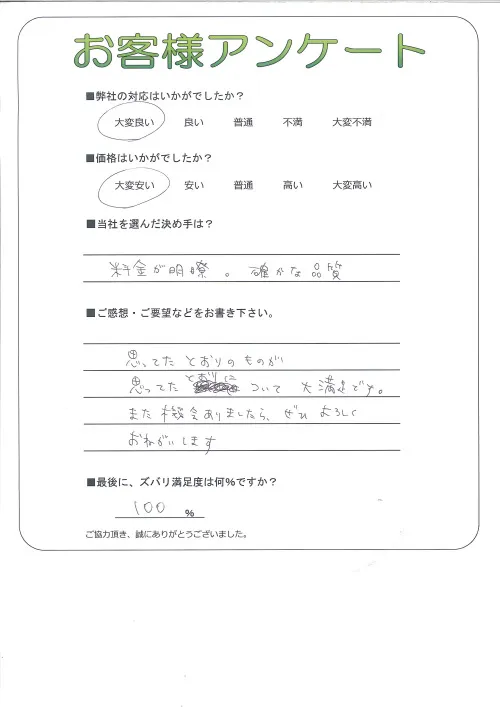 お客様アンケート
■弊社の対応はいかがでしたか？
大変良い 良い 普通 不満 大変不満
■価格はいかがでしたか？
大変安い 安い 普通 高い 大変高い
■当社を選んだ決め手は？
料金が明瞭。確かな品質
■ご感想・ご要望などをお書き下さい。
思ってたとおりのものが
思ってたとおりについて大満足です。
また機会ありましたら、ぜひよろしく
おねがいします
■最後に、ズバリ満足度は何％ですか？
100 %
ご協力頂き、誠にありがとうございました。